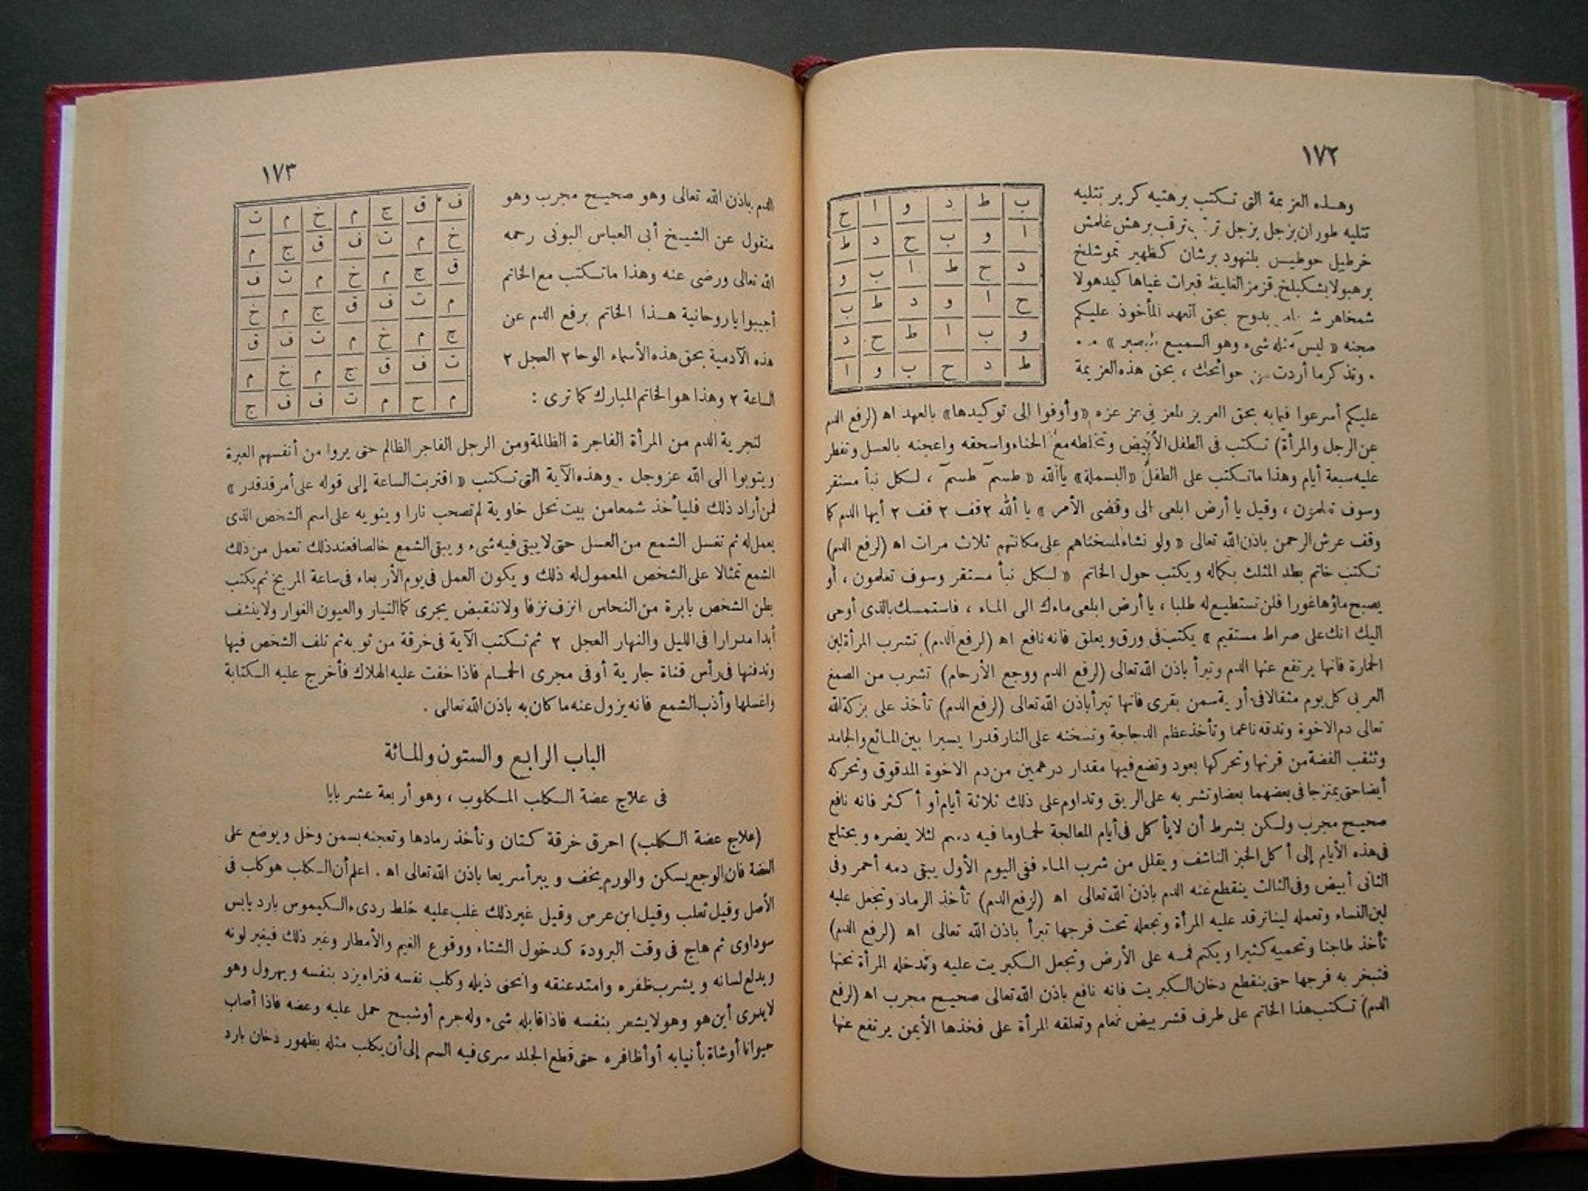 ١٧٢
وهذه العزيمة التى تكتب برهتيه كرير تتليه
تتليه طوران بزجل بزجل ترقب برهش غلمش
خرطيل حوطيس بلنهود برشان كظهير نموشلخ
برهيولا بشكيلخ قزمز انغلليط قبرات غياها كيدهولا
شمخاهر بدوح بحق العهد المأخوذ عليكم
« ليس كمثله شىء وهو السميع البصير »
. وتذكر ما أردت من حوائجك ، بحق هذه العزيمة
ب ط د و ا ح
ا و ب ح د ط
د ح ط ا ب و
ح ا و د ط ب
و ب ا ط ح د
ط د ح ب و ا
عليكم أسرعوا فيما به بحق العزيز المعز فى عز عزه «وأوفوا الى توكيدها» بالعهد اه (لرفع الدم
عن الرجل والمرأة) تكتب فى الطفل الأبيض وتخلطه مع الحناء واسحقه واعجنه بالعسل وتفطر
عليه سبعة أيام وهذا ما تكتب على الطفل «البسملة» يا الله « طسم طسم ، لكل نبأ مستقر
وسوف تعلمون ، وقيل يا أرض ابلعى الى وقضى الأمر » يا ألله ٢ قف ٢ قف ٢ أيها الدم كما
وقف عرش الرحمن باذن الله تعالى « ولو نشاء لمسخناهم على مكانتهم ثلاث مرات اه (لرفع الدم)
تكتب خاتم بطد المثلث بكماله ويكتب حول الخاتم « لكل نبأ مستقر وسوف تعلمون ، أو
يصبح ماؤها غورا فلن تستطيع له طلبا ، يا أرض ابلعى ماءك الى الماء ، فاستمسك بالذى أوحى
اليك انك على صراط مستقيم » يكتب فى ورق ويعلق فانه نافع اه (لرفع الدم) تشرب المرأة لبن
الحمارة فانها يرتفع عنها الدم وتبرأ باذن الله تعالى (لرفع الدم ووجع الأرحام) تشرب من الصمغ
العربى كل يوم مثقالا فى أوقية سمن بقرى فانها تبرأ باذن الله تعالى (لرفع الدم) تأخذ على بركة الله
تعالى دم الاخوة وتدقه ناعما وتأخذ عظم الدجاجة وتسخنه على النار قدرا يسيرا بين المائع والجامد
وتثقب الفضة من قرنها وتحركها بعود وتضع فيها مقدار درهمين من دم الاخوة المدقوق وتحركه
أيضا حتى يمتزجا فى بعضهما بعضا وتشربه على الريق وتداوم على ذلك ثلاثة أيام أو أكثر فانه نافع
صحيح مجرب ولكن بشرط أن لا يأكل فى أيام المعالجة لحما وما فيه دسم لئلا يضره ويحتاج
فى هذه الأيام إلى أكل الخبز الناشف ويقلل من شرب الماء ففى اليوم الأول يبقى دمه أحمر وفى
الثانى أبيض وفى الثالث ينقطع عنه الدم باذن الله تعالى اه (لرفع الدم) تأخذ الرماد وتجعل عليه
لبن النساء وتعمله لينا ترقد عليه المرأة وتجعله تحت فرجها تبرأ باذن الله تعالى اه (لرفع الدم)
تأخذ طاجنا وتحميه كثيرا ويكتم فمه على الأرض وتجعل الكبريت عليه وتدخله المرأة تحتها
فتبخر به فرجها حتى ينقطع دخان الكبريت فانه نافع باذن الله تعالى صحيح مجرب اه (لرفع
الدم) تكتب هذا الخاتم على طرف قشر بيض نعام وتعلقه المرأة على فخذها الأيمن يرتفع عنها
١٧٣
الدم باذن الله تعالى وهو صحيح مجرب وهو
منقول عن الشيخ أبى العباس البونى رحمه
الله تعالى ورضى عنه وهذا ما تكتب مع الخاتم
أجيبوا ياروحانية هذا الخاتم برفع الدم عن
هذه الآدمية بحق هذه الأسماء الوحا ٢ العجل ٢
الساعة ٢ وهذا هو الخاتم المبارك كما ترى :
ف ق ج م خ م ت
خ م ت ف ق ج م
ق ج م خ م ت ف
م ت ف ق ج م خ
ج م خ م ت ف ق
ت ف ق ج م خ م
م خ م ت ف ق ج
لتجرية الدم من المرأة الفاجرة الظالمة ومن الرجل الفاجر الظالم حتى يروا من أنفسهم العبرة
ويتوبوا الى الله عزوجل . وهذه الآية التى تكتب « اقتربت الساعة إلى قوله على أمر قد قدر »
فمن أراد ذلك فليأخذ شمعا من بيت نحل خاوية لم تصحب نارا وينويه على اسم الشخص الذى
يعمل له ثم تغسل الشمع من العسل حتى لا يبقى فيه شىء ويبقى الشمع خالصا فعند ذلك تعمل من ذلك
الشمع تمثالا على الشخص المعمول له ذلك ويكون العمل فى يوم الأربعاء فى ساعة المريخ ثم يكتب
بطن الشخص بابرة من النحاس انزف نزفا ولا تنقبض يجرى كالتيار والعيون الغوار ولا ينشف
أبدا مدرارا فى الليل والنهار العجل ٢ ثم تكتب الآية فى خرقة من ثوبه ثم تلف الشخص فيها
وتدفنها فى رأس قناة جارية أو فى مجرى الحمام فاذا خفت عليه الهلاك فأخرج عليه الكتابة
واغسلها وأذب الشمع فانه يزول عنه ما كان به باذن الله تعالى .
الباب الرابع والستون والمائة
فى علاج عضة الكلب المكلوب ، وهو أربعة عشر بابا
(علاج عضة الكلب) احرق خرقة كتان وتأخذ رمادها وتعجنه بسمن وخل ويوضع على
العضة فان الوجع يسكن والورم يخف ويبرأ سريعا باذن الله تعالى اه . اعلم أن الكلب هو كلب فى
الأصل وقيل ثعلب وقيل ابن عرس وقيل غير ذلك غلب عليه خلط ردىء الكيموس بارد يابس
سوداوى ثم هاج فى وقت البرودة كدخول الشتاء ووقوع الغيم والأمطار وغير ذلك فيغير لونه
ويدلع لسانه ويشرب ظفره وامتد عنقه وانحنى ذيله وكلب نفسه فتراه يزبد بنفسه ويهرول وهو
لا يدرى أين هو وهو لا يشعر بنفسه فاذا قابله شىء وله جرم أو شبح حمل عليه وعضه فاذا أصاب
حيوانا أو شاة بأنيابه أو أظافره حتى قطع الجلد سرى فيه السم إلى أن يكلب مثله بظهور دخان بارد